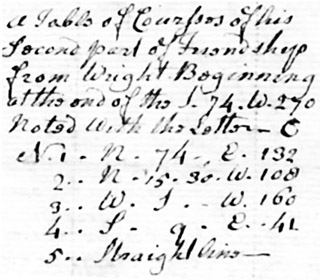 A Table of Courses of his
Second part of Friendship
from Wright Beginning
at the end of the S. 74. W. 270
Noted With the Letter - C
N. 1 .. N. 74 . E. 132
2 .. N. 15. 30. W. 108
3 .. W. S .. W. 160
4 .. S . 9 . E. 41
5 .. Straight line -